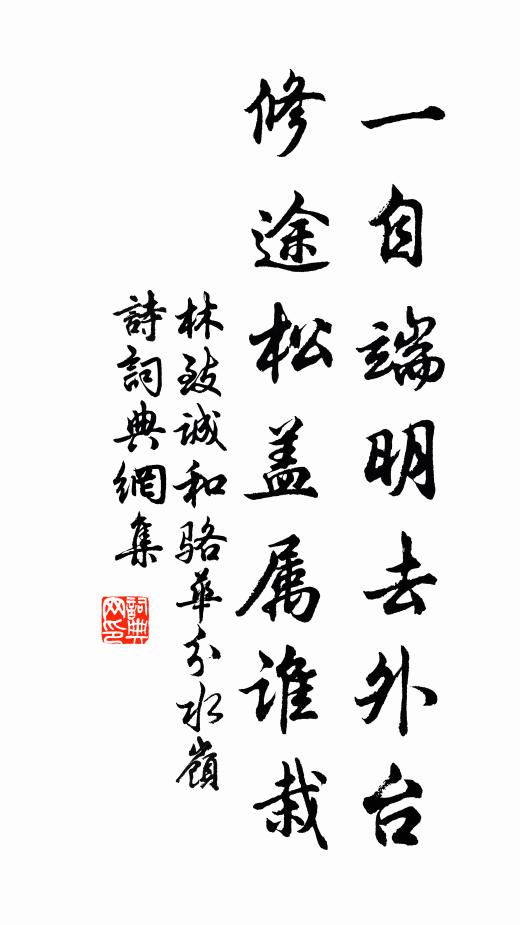 一自端明去外台
修途松盖属谁栽
林致诚和骆华分水嶺
詩詞典網集
詞典网印